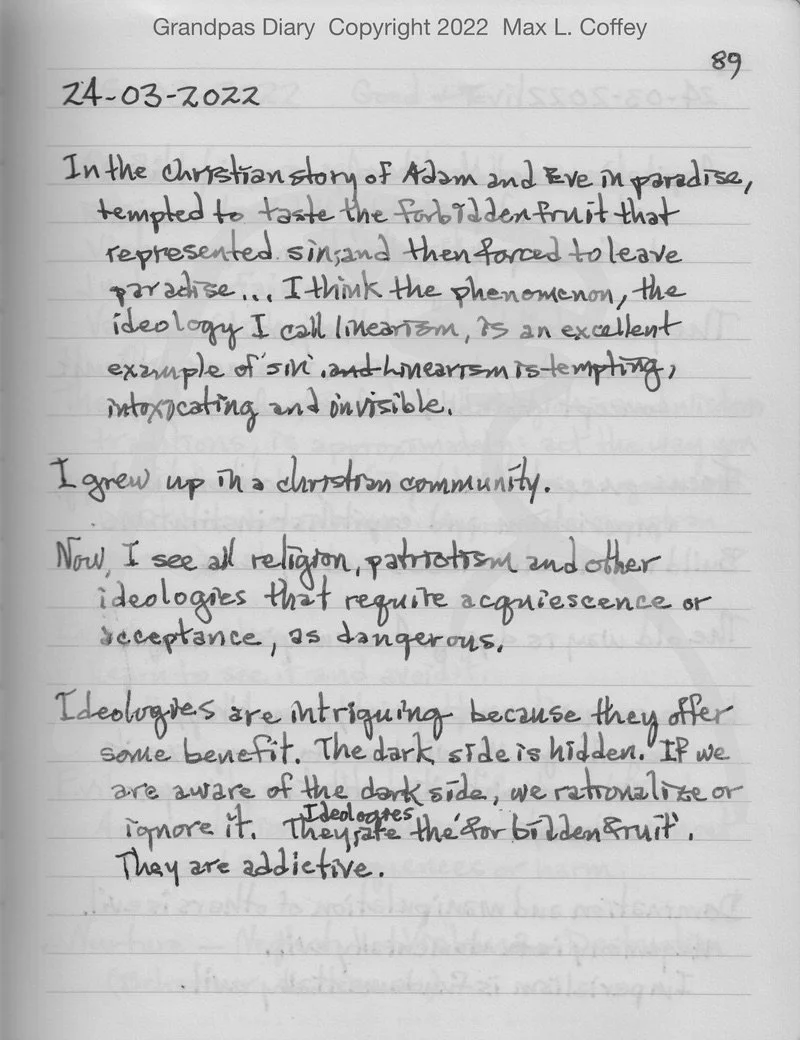 Grandpas Diary Copyright 2022 Max L. Coffey
89
24-03-2022
In the christian story of Adam and Eve in paradise,
tempted to taste the forbidden fruit that
represented sin, and then forced to leave
paradise... I think the phenomenon, the
ideology I call linearism, is an excellent
example of 'sin'. and Linearism is tempting,
intoxicating and invisible.
I grew up in a christian community.
Now, I see all religion, patriotism and other
ideologies that require acquiescence or
acceptance, as dangerous.
Ideologies are intriguing because they offer
some benefit. The dark side is hidden. If we
are aware of the dark side, we rationalize or
Ideologies
ignore it. They are the 'forbidden fruit'.
They are addictive.